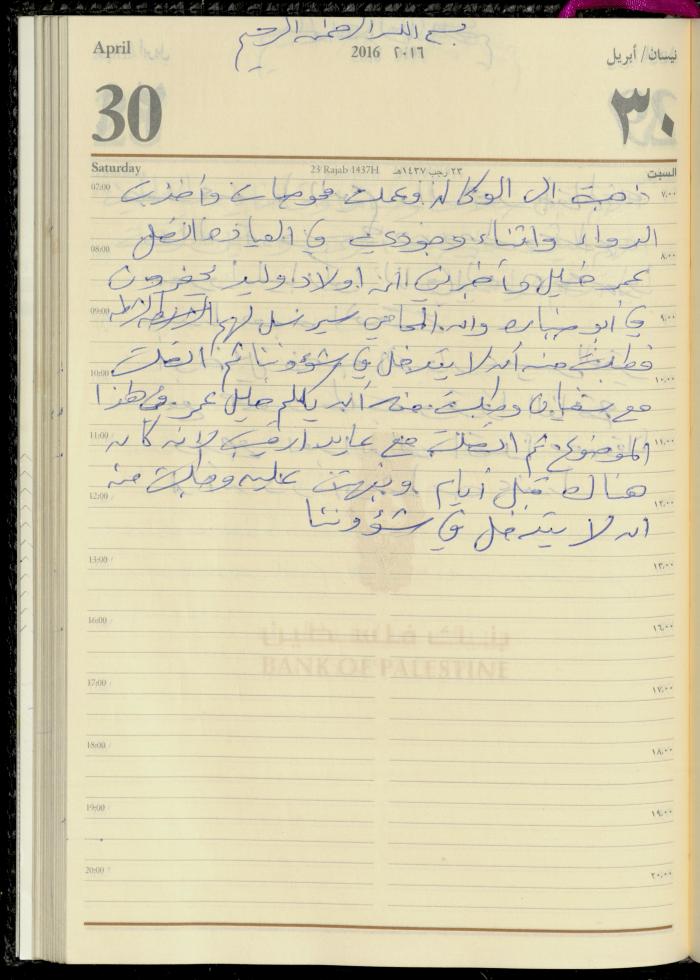 بسم الله الرحمن الرحيم
April 2016 ٢٠١٦ نيسان/ أبريل
30 ٣٠
Saturday 23 Rajab 1437H ٢٣ رجب ١٤٣٧هـ السبت
07:00 ٧:٠٠
ذهبت الى الوكالة وعملت فحوصات وأخذت
الدواء واثناء وجودي في العيادة اتصل
08:00 ٨:٠٠
عمر خليل وأخبرني انه اولاد وليد يحفرون
09:00 ٩:٠٠
في أبو وانه المحامي سيرسل لهم الشرطة
فطلبت منه أن لا يتدخل في شؤوننا ثم اتصلت
10:00 ١٠:٠٠
مع سفيان وطلبت منه أن يكلم خليل عمر في هذا
11:00 ١١:٠٠
الموضوع ثم اتصلت مع عايد لانه كان
هناك قبل أيام ونبهت عليه وطلبت منه
12:00 ١٢:٠٠
ان لا يتدخل في شؤوننا
13:00 ١٣:٠٠
16:00 ١٦:٠٠
بنك فلسطين
BANK OF PALESTINE
17:00 ١٧:٠٠
18:00 ١٨:٠٠
19:00 ١٩:٠٠
20:00 ٢٠:٠٠